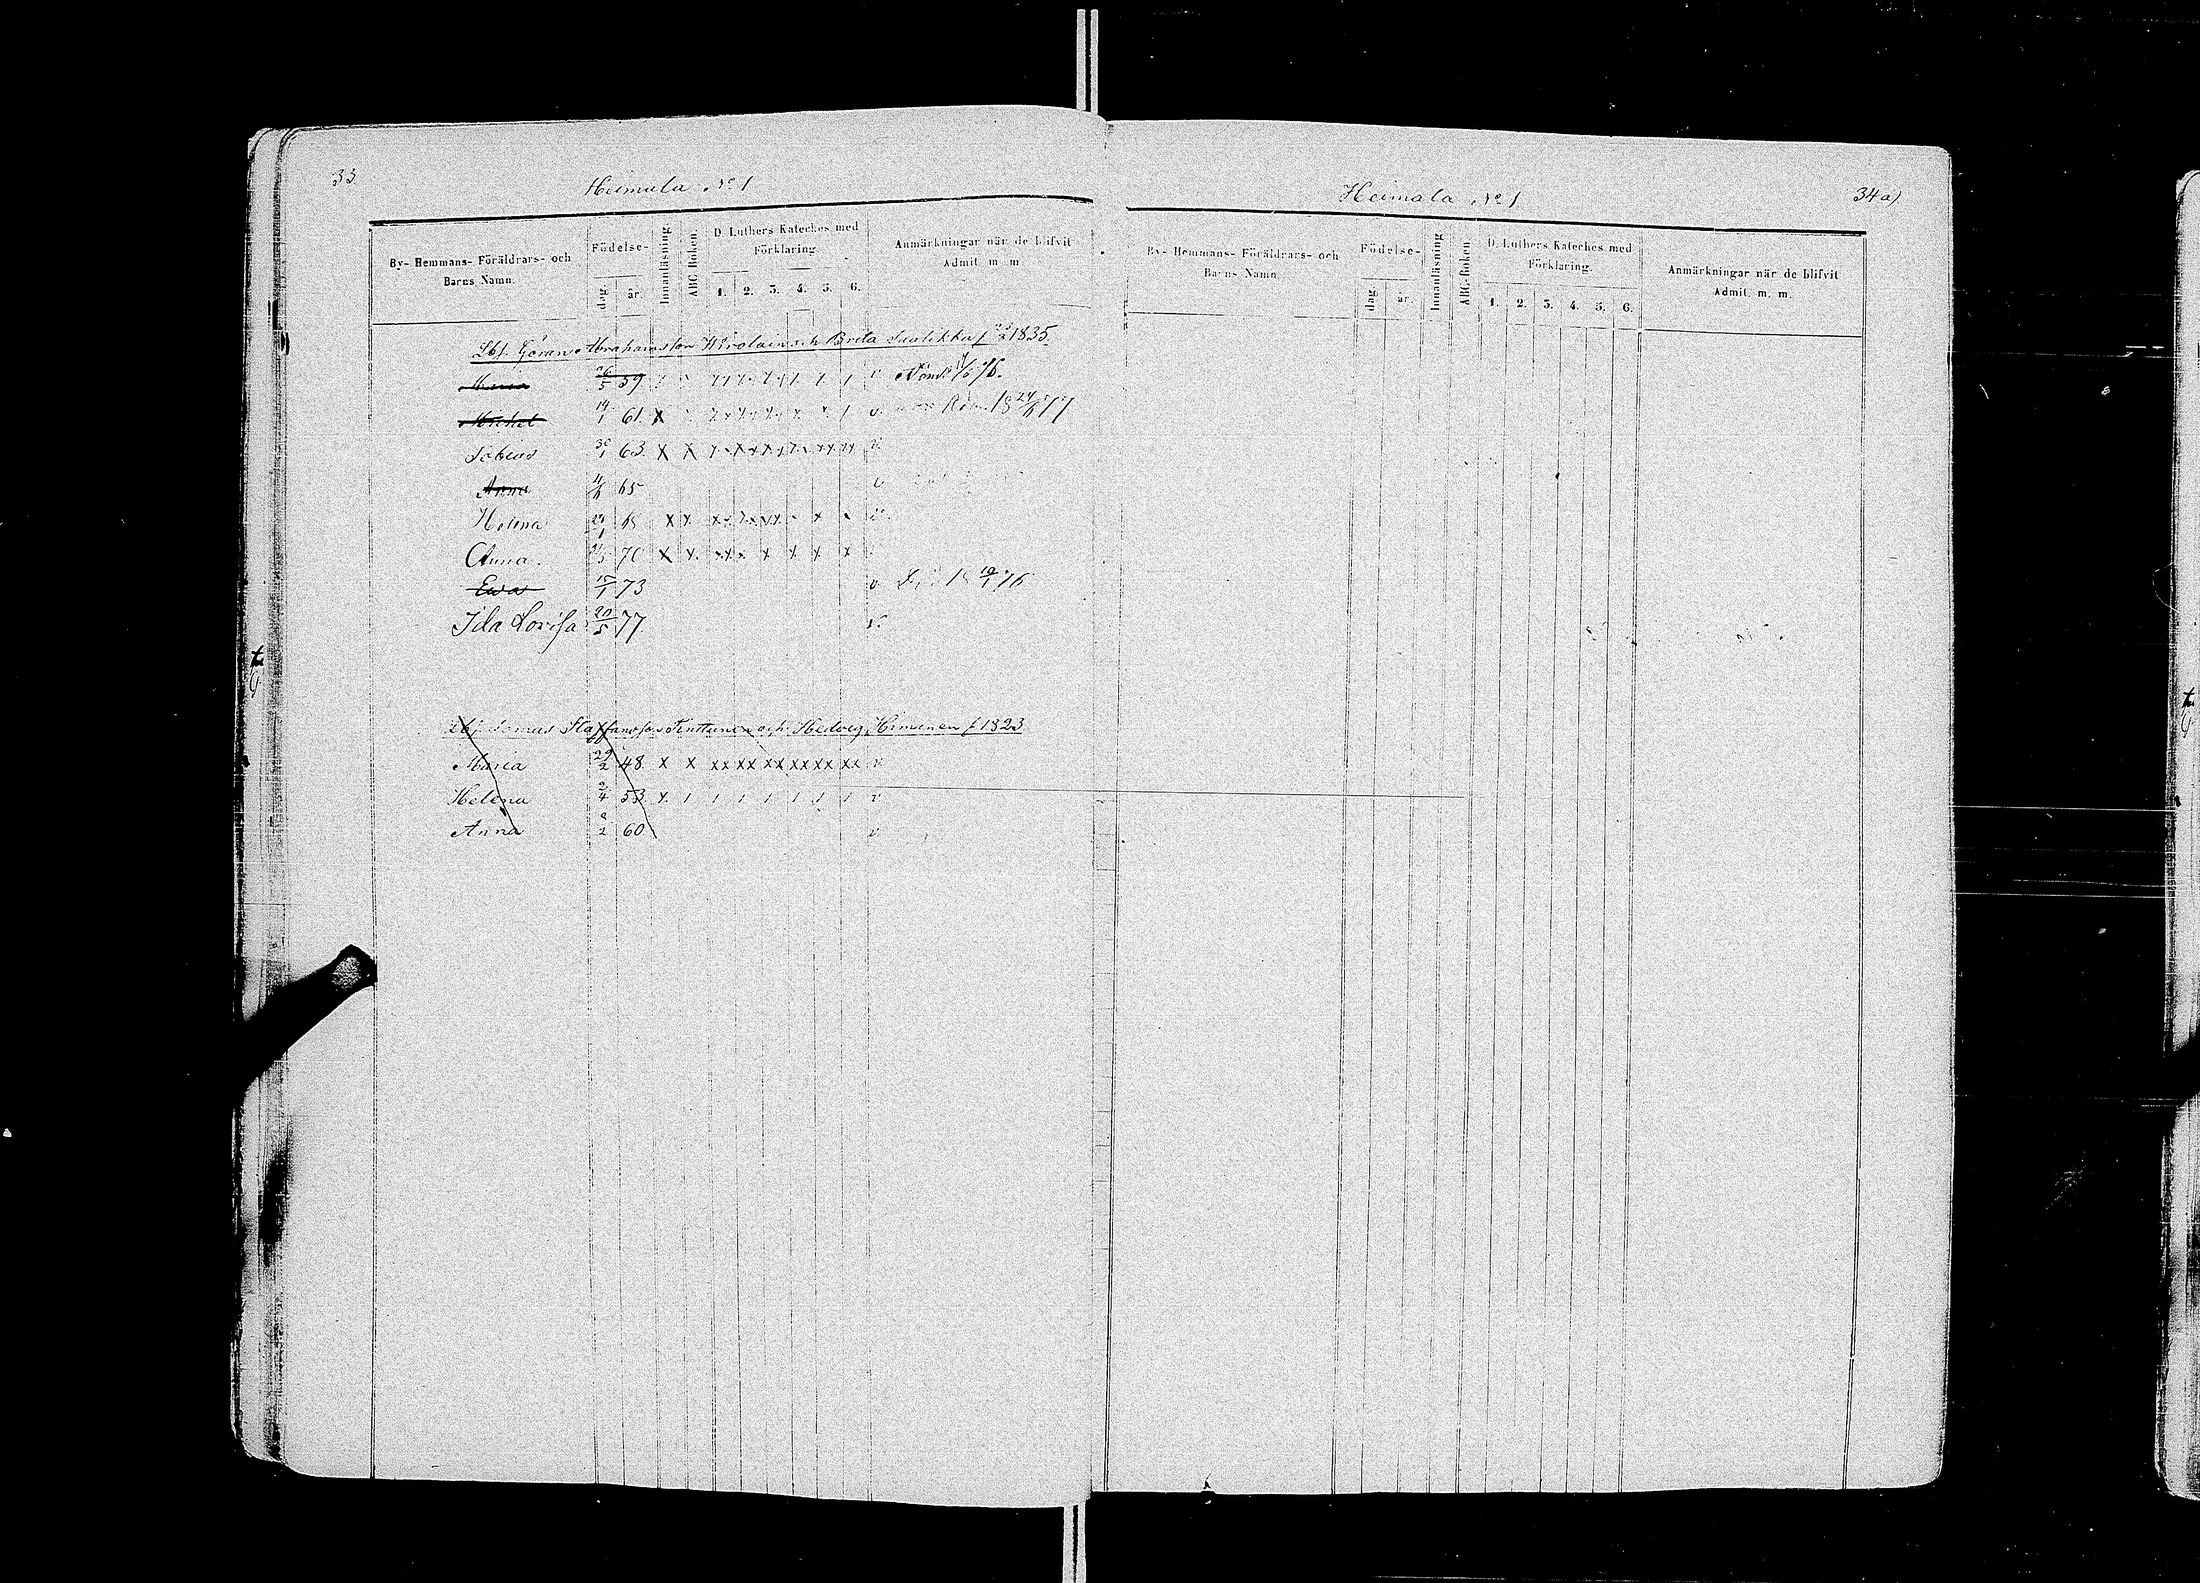 33.
Heimala No 1
By- Hemmans- Föräldrars- och Barns Namn.
Födelse-
dag.
år.
Innanläsning
ABC-Boken.
D. Luthers Kateches med Förklaring.
1. 2. 3. 4. 5. 6.
Anmärkningar när de blifvit Admit. m. m.
Lbf. Göran Abrahamsson och Brita 1835.
Maria 26/5 59 v
Michel 14/1 61. x v 18 24/6 77
Tobias 30/1 63. x x v
Anna 65 v
Helena x x v
Anna. 70 x x
Ewa 15/1 73 v 18 19/1 76
Ida Lovisa 20/5 77 v
Lbf. Tomas Staffansson och Hedvig Himanen f 1823
Maria 29/2 48. x x xx xx xx xx xx xx v
Helena 2/4 53. x / / / / / / / v
Anna 2/2 60 v
Heimala No 1
34 a)
By- Hemmans- Föräldrars- och Barns Namn.
Födelse-
dag.
år.
Innanläsning
ABC-Boken.
D. Luthers Kateches med Förklaring.
1. 2. 3. 4. 5. 6.
Anmärkningar när de blifvit Admit. m. m.